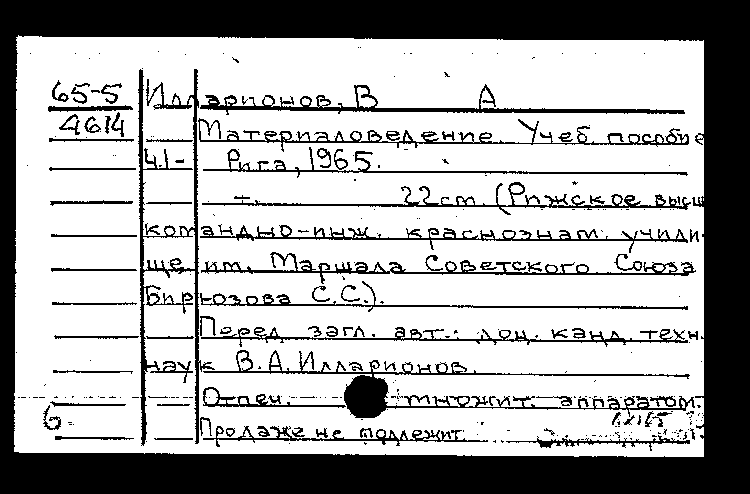 65-5 Илларионов, В А
4614 Материаловедение. Учеб. пособие
Ч.1- Рига, 1965.
т. 22 ст. (Рижское высш
командно-инж. краснознам. учили-
ще им. Маршала Советского Союза
Бирюзова С.С.).
Перед загл. авт.: доц. канд. техн.
наук В.А.Илларионов.
Отпеч. множит. аппаратом.
6
Продаже не подлежит.